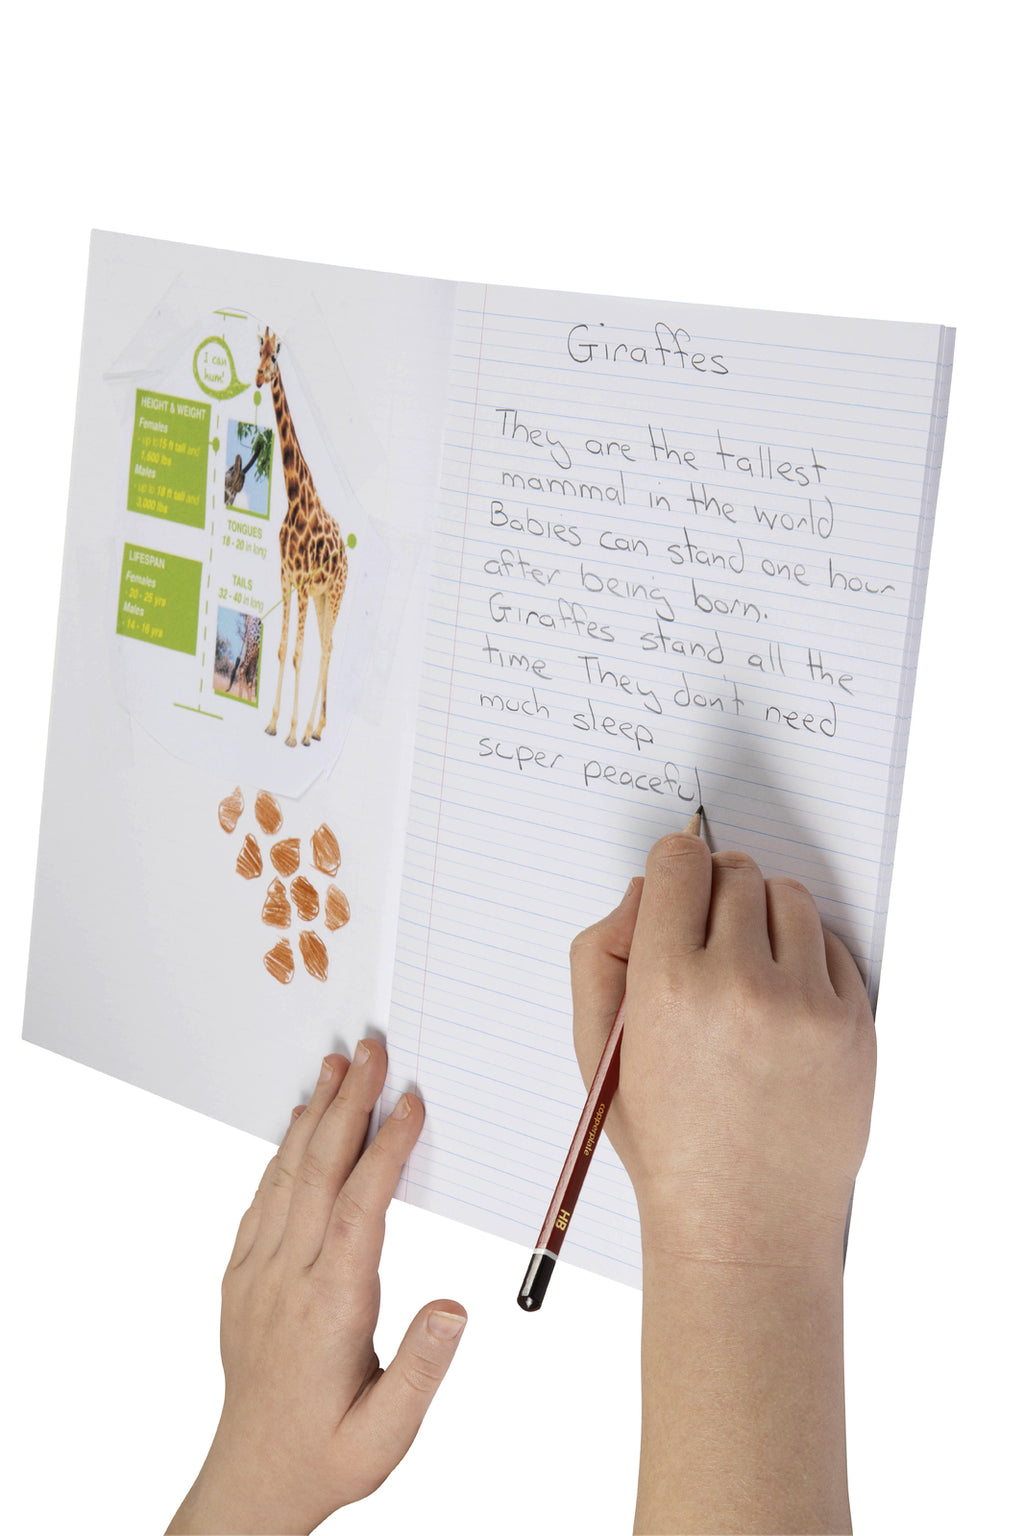 I can
hum!
HEIGHT & WEIGHT
Females
- up to 15 ft tall and
1,500 lbs
Males
- up to 18 ft tall and
3,000 lbs
TONGUES
18 - 20 in long
LIFESPAN
Females
- 20 - 25 yrs
Males
- 14 - 16 yrs
TAILS
32 - 40 in long
Giraffes
They are the tallest
mammal in the world
Babies can stand one hour
after being born.
Giraffes stand all the
time They don't need
much sleep
super peaceful
copperplate
HB